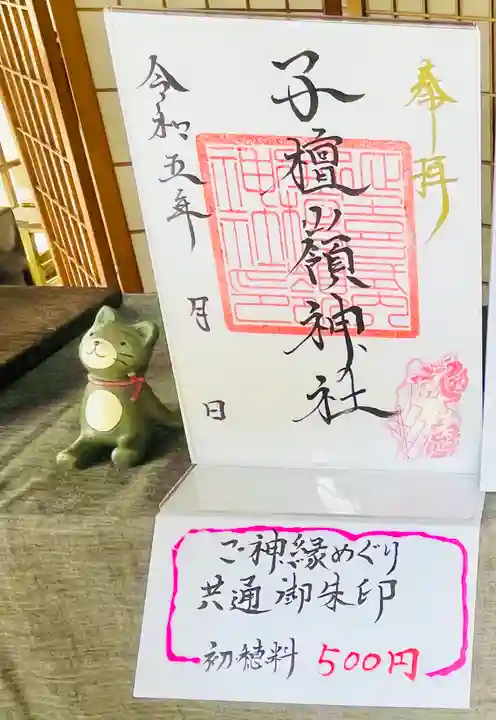 奉拝
子檀嶺神社
令和五年
月
日
ご神縁めぐり
共通御朱印
初穂料 500円